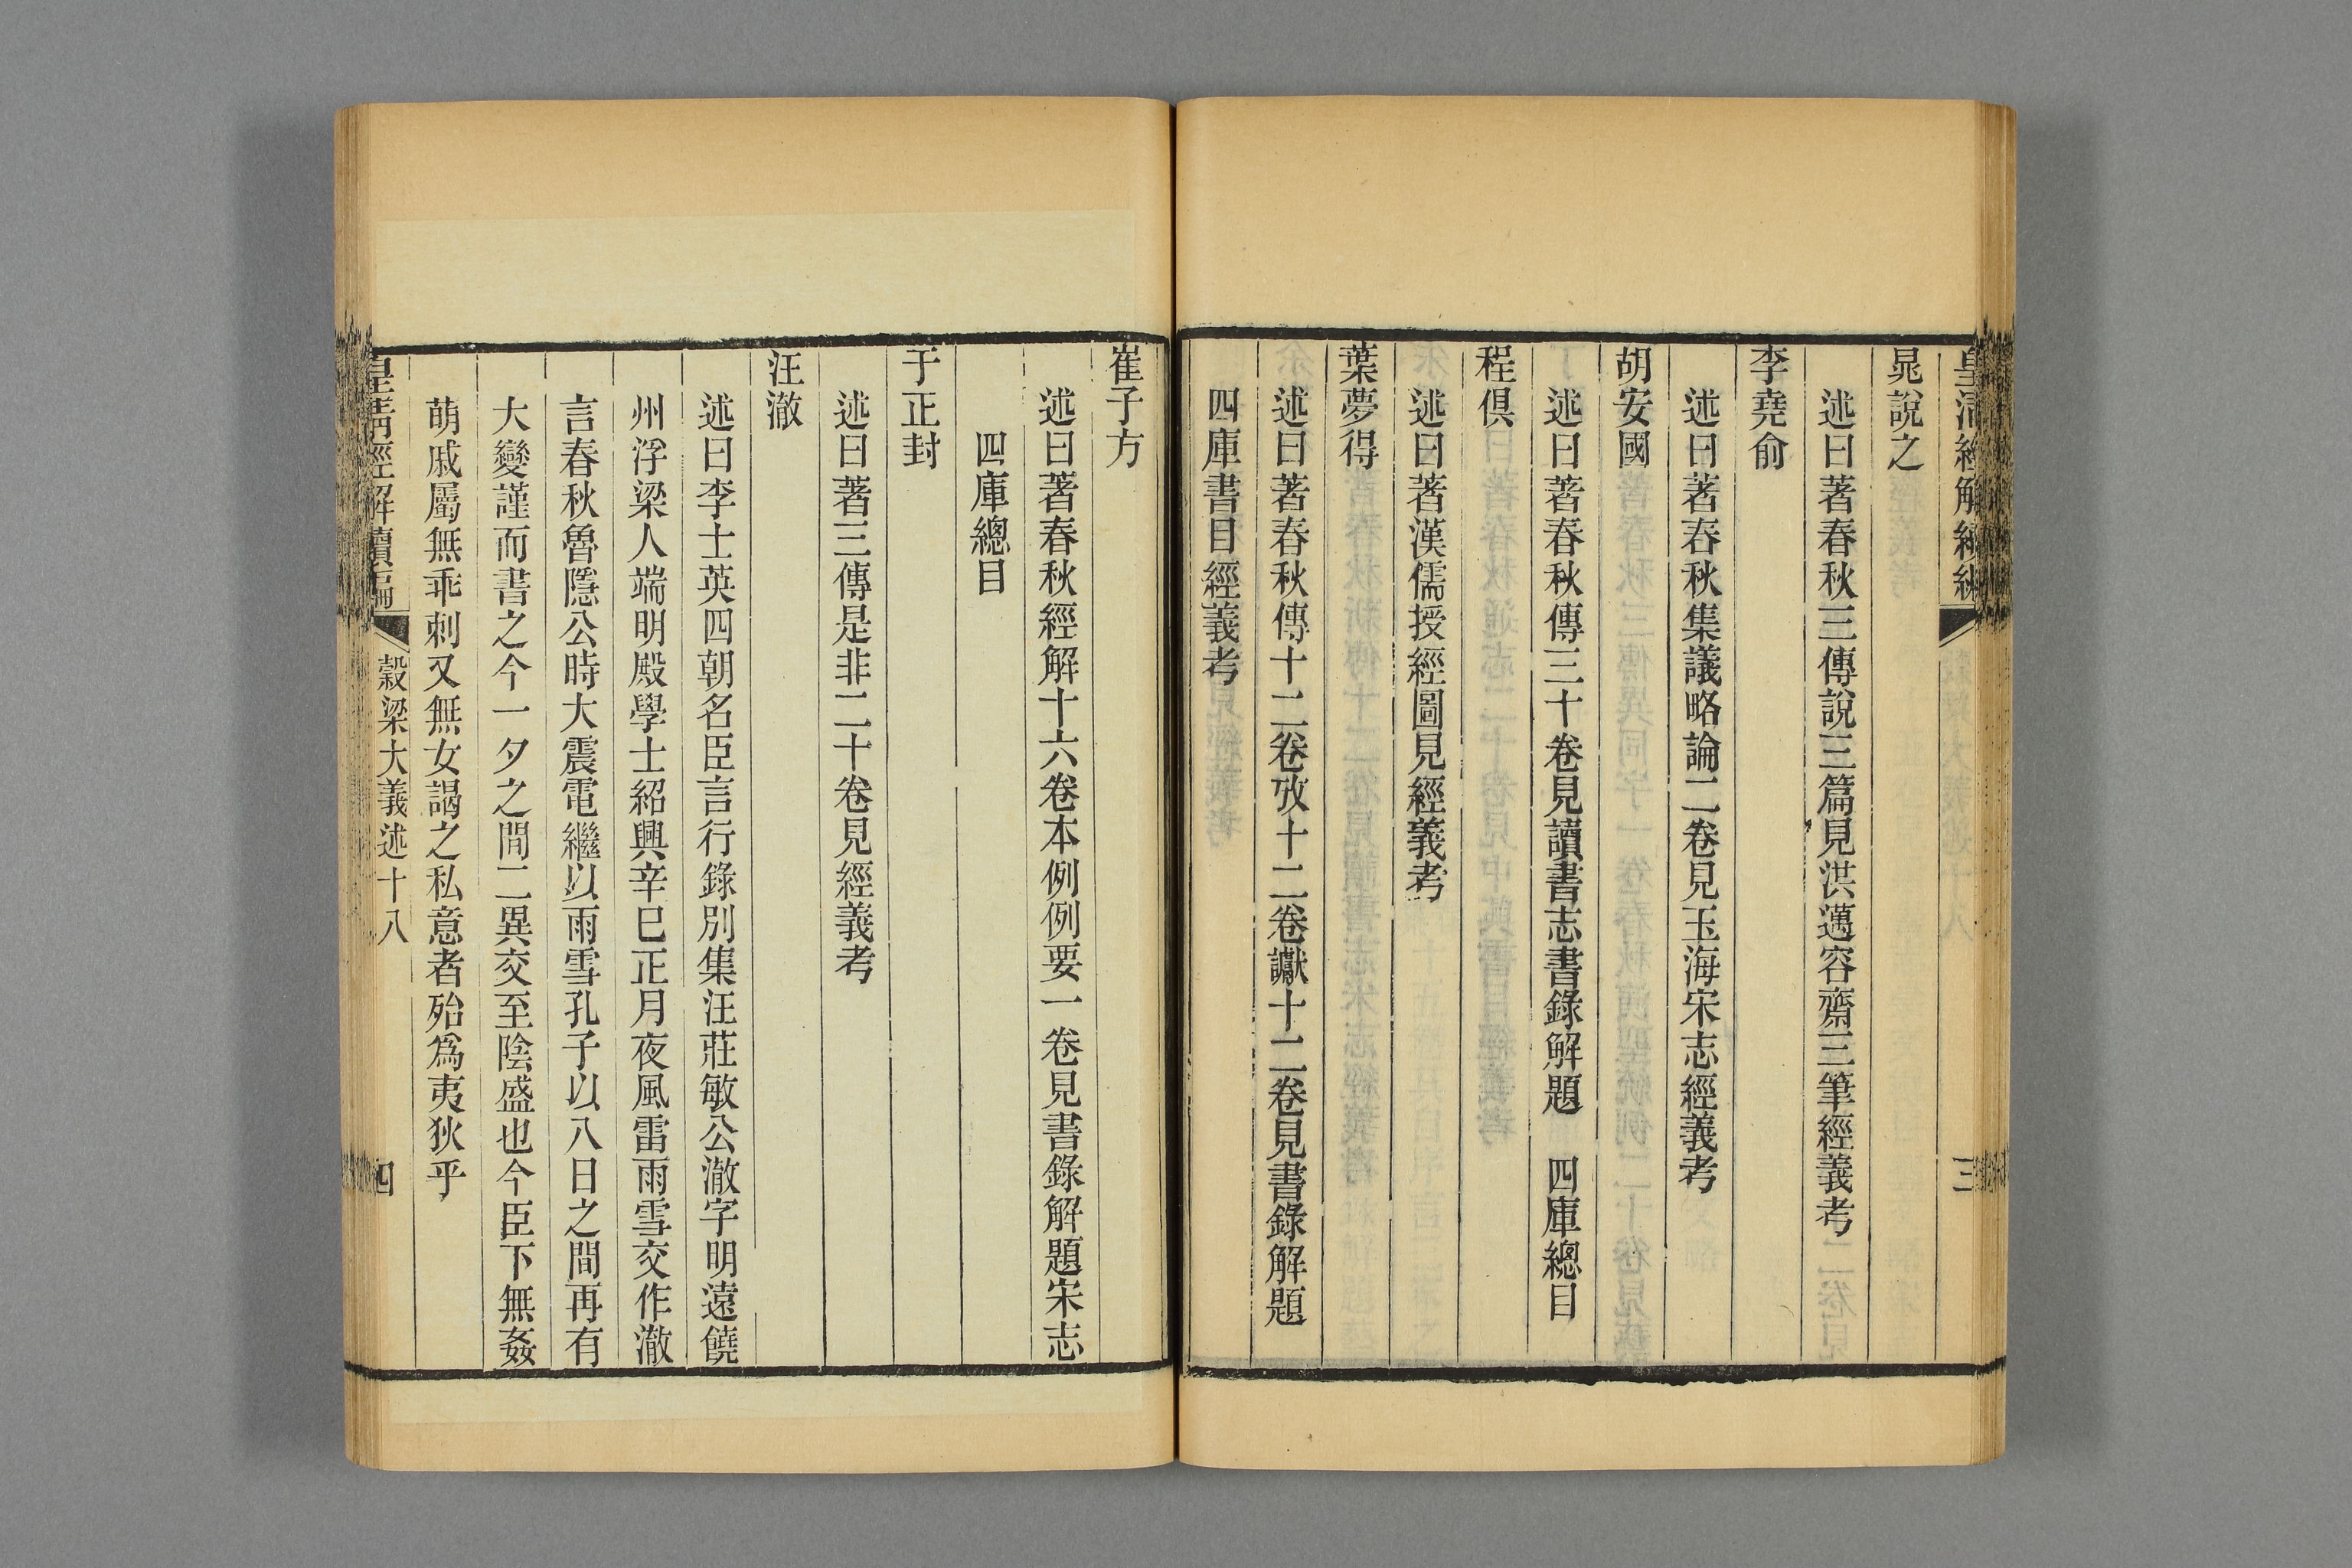 皇清經解續編
三
晁說之
述曰著春秋三傳說三篇見洪邁容齋三筆經義考
李堯俞
述曰著春秋集議略論二卷見玉海宋志經義考
胡安國
述曰著春秋傳三十卷見讀書志書錄解題　四庫總目
程俱
述曰著漢儒授經圖見經義考
葉夢得
述曰著春秋傳十二卷攷十二卷讞十二卷見書錄解題
四庫書目經義考
崔子方
述曰著春秋經解十六卷本例例要一卷見書錄解題宋志
四庫總目
于正封
述曰著三傳是非二十卷見經義考
汪澈
述曰李士英四朝名臣言行錄別集汪莊敏公澈字明遠饒
州浮梁人端明殿學士紹興辛巳正月夜風雷雨雪交作澈
言春秋魯隱公時大震電繼以雨雪孔子以八日之間再有
大變謹而書之今一夕之間二異交至陰盛也今臣下無姦
萌戚屬無乖刺又無女謁之私意者殆爲夷狄乎
皇清經解續編
穀梁大義述十八
四